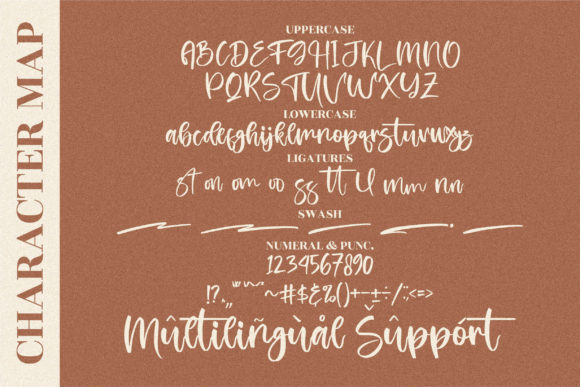 CHARACTER MAP
UPPERCASE
ABCDEFGHIJKLMNO
PQRSTUVWXYZ
LOWERCASE
abcdefghijklmnopqrstuvwxyz
LIGATURES
st on om oo ss tt ll mm nn
SWASH
NUMERAL & PUNC.
1234567890
!?.,„"'"~#$&%()+-±÷/:;<=>
Mûltiliñgùål Šûppórt